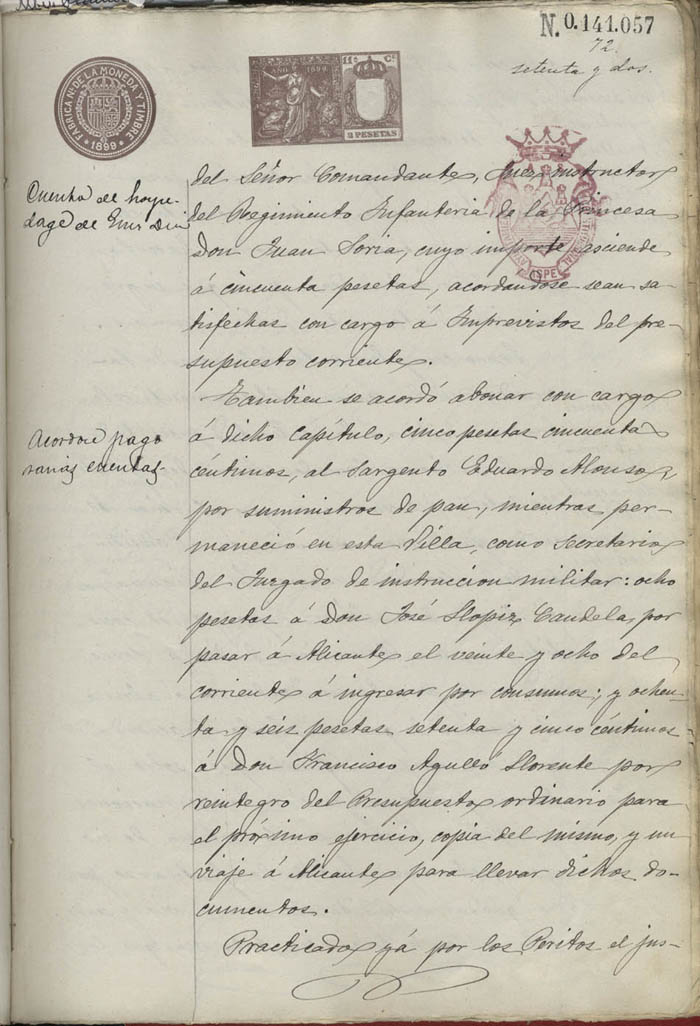 N. 0.141.057
72
setenta y dos.
FABRICA NL DE LA MONEDA Y TIMBRE
1899
AÑO 1899
11ª Cª
2 PESETAS
Cuenta de hospe-
dage de
del Señor Comandante, Juez instructor
del Regimiento Infanteria de la Princesa
Don Juan Soria, cuyo importe asciende
á cincuenta pesetas, acordandose sean sa-
tisfechas con cargo á Imprevistos del pre-
supuesto corriente.
Tambien se acordó abonar con cargo
á dicho Capítulo, cinco pesetas cincuenta
céntimos, al Sargento Eduardo Alonso,
por suministros de pan, mientras per-
maneció en esta Villa, como Secretario
del Juzgado de instruccion militar: ocho
pesetas á Don José Llopiz Candela, por
pasar á Alicante el veinte y ocho del
corriente á ingresar por consumos; y ochen-
ta y seis pesetas setenta y cinco céntimos
á Don Francisco Agulló Llorente por
reintegro del Presupuesto ordinario para
el próximo ejercicio, copia del mismo, y un
viaje á Alicante para llevar dichos do-
cumentos.
Practicado yá por los Peritos el jus-
Acordose pago
varias cuentas